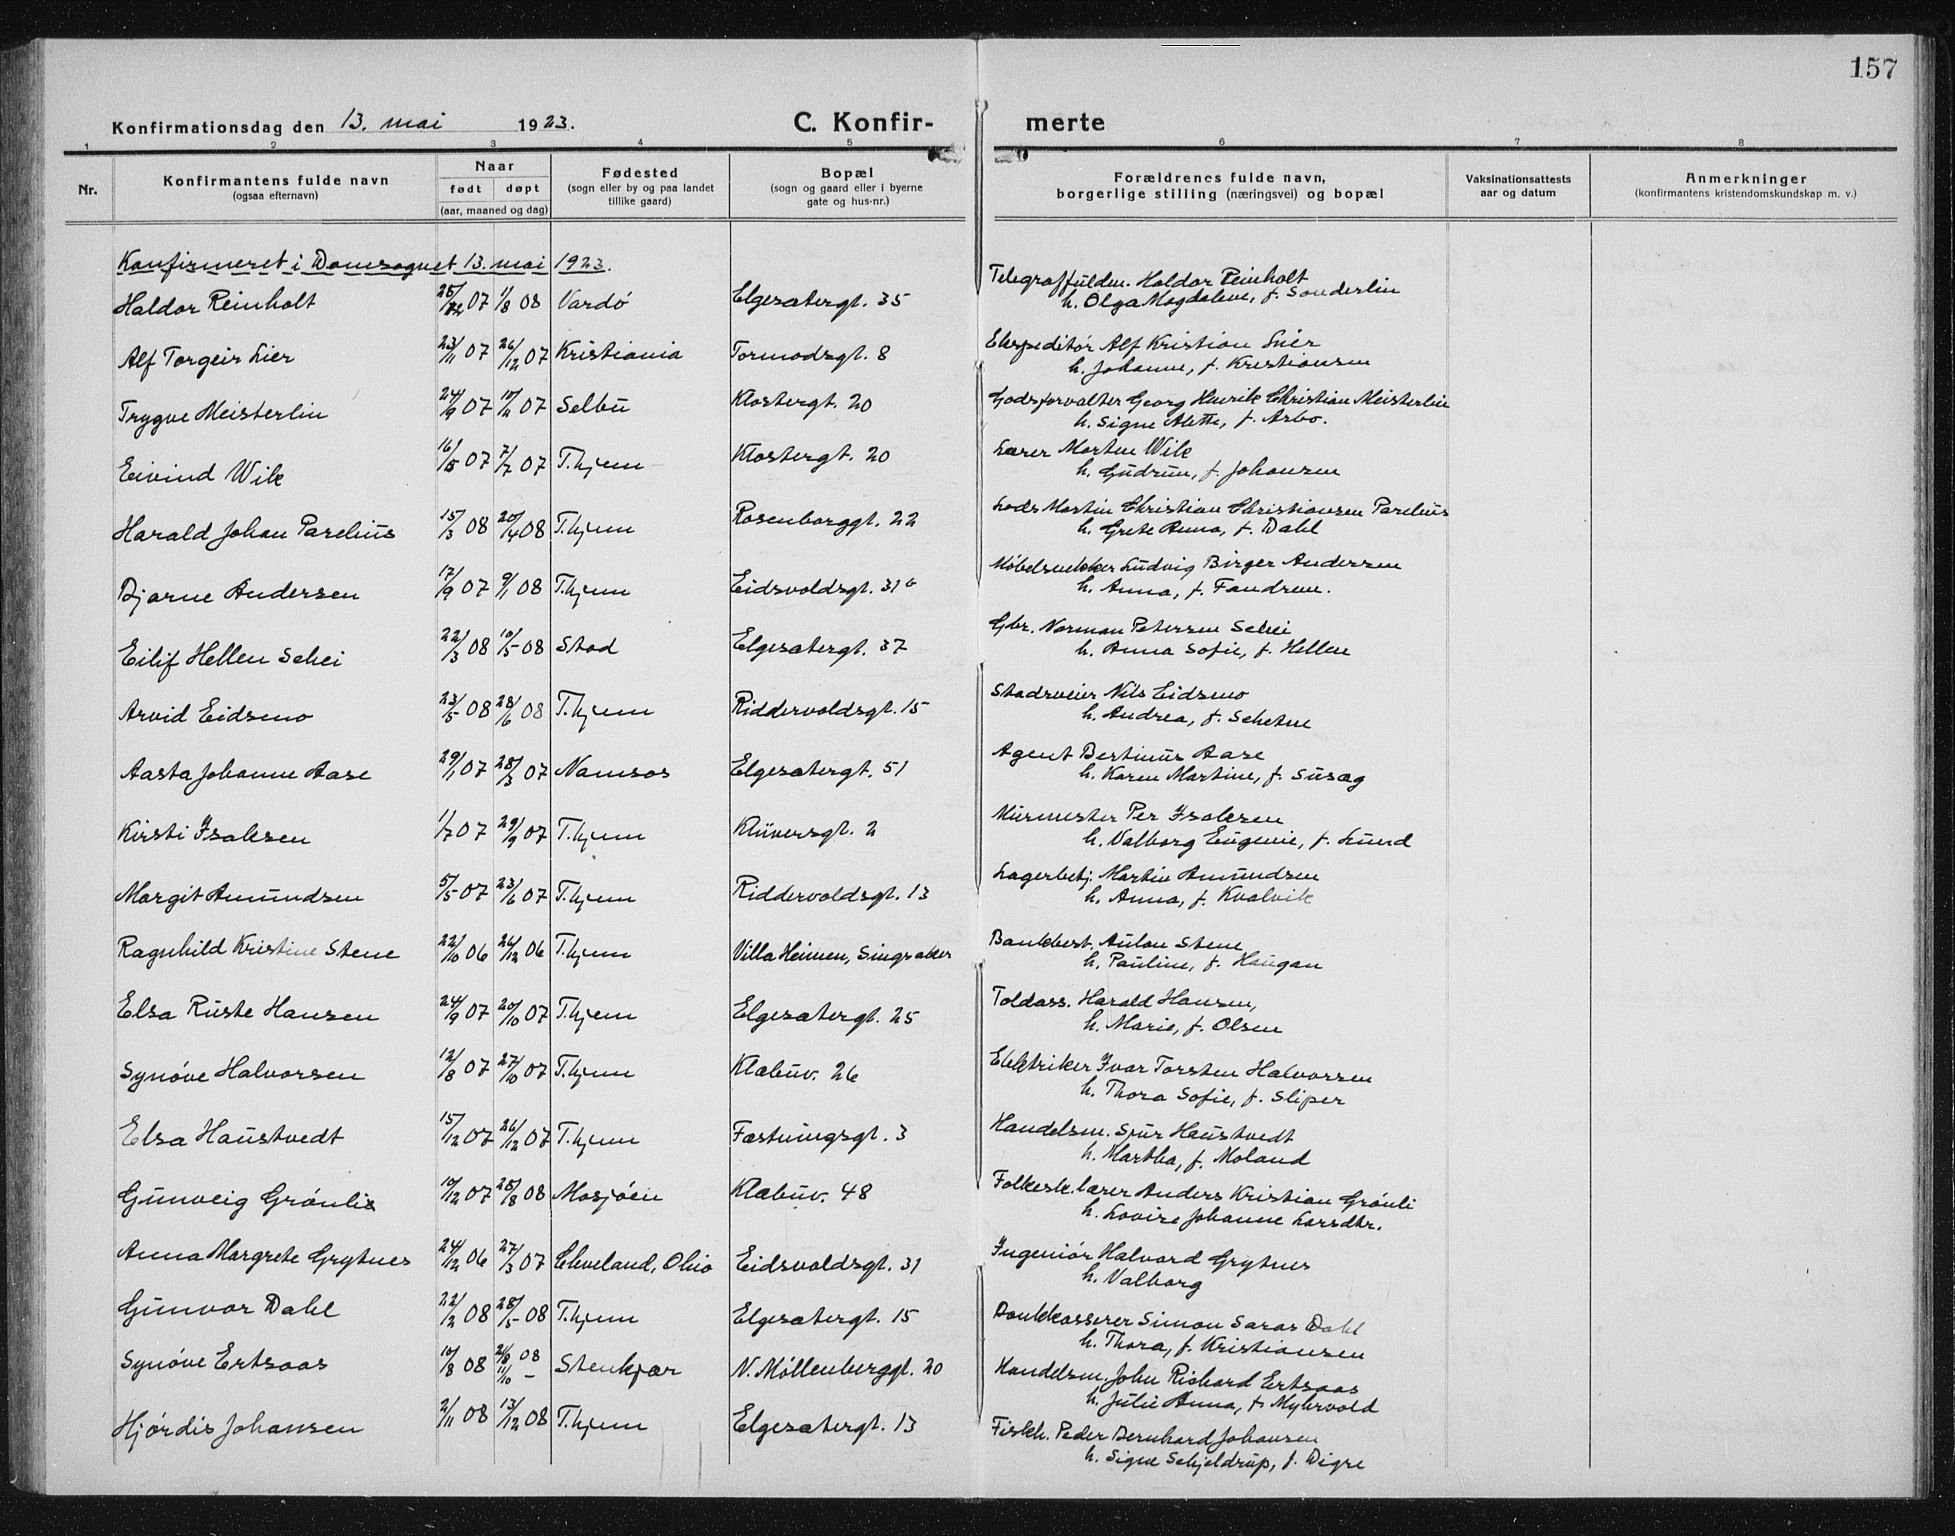 157
Konfirmationsdag den 13. mai 1923. C. Konfir- merte
1 2 3 4 5 6 7 8
Nr. Konfirmantens fulde navn (ogsaa efternavn) Naar født døpt (aar, maaned og dag) Fødested (sogn eller by og paa landet tillike gaard) Bopæl (sogn og gaard eller i byerne gate og hus-nr.) Forældrenes fulde navn, borgerlige stilling (næringsvei) og bopæl Vaksinationsattests aar og datum Anmerkninger (konfirmantens kristendomskundskap m. v.)
Konfirmeret i Domsognet 13. mai 1923.
Haldor Reinholt 25/12 07 1/8 08 Vardö Elgesætergt. 35 Telegraffuldm. Haldor Reinholt
h. Olga Magdalene, f. Sonderlin
Alf Torgeir Lier 23/11 07 26/12 07 Kristiania Tormodsgt. 8 Ekspeditör Alf Kristian Lier
h. Johanne, f. Kristiansen
Trygve Meisterlin 24/9 07 10/11 07 Selbu Klostergt. 20 Godsforvalter Georg Henrik Christian Meisterlin
h. Signe Alette, f. Arbo.
Eivind Wik 16/5 07 7/7 07 T.hjem Klostergt. 20 Lærer Morten Wik
h. Gudrun, f. Johansen
Harald Johan Parelius 15/3 08 20/4 08 T.hjem Rosenborggt. 22 Lods Martin Christian Christiansen Parelius
h. Grete Anna, f. Dahl
Bjarne Andersen 17/9 07 9/1 08 T.hjem Eidsvoldsgt. 31b Möbelsnekker Ludvig Birger Andersen
h. Anna, f. Fandrem.
Eilif Hellen Schei 22/3 08 10/5 08 Stod Elgesætergt. 37 Gbr. Norman Petersen Schei
h. Anna Sofie, f. Hellen
Arvid Eidsmo 23/5 08 28/6 08 T.hjem Riddervoldsgt. 15 Stadsveier Nils Eidsmo
h. Andrea, f. Schetne
Aasta Johanne Aase 29/1 07 28/3 07 Namsos Elgesætergt. 51 Agent Bertinus Aase
h. Karen Martine, f. Susæg
Kirsti Isaksen 1/7 07 29/9 07 T.hjem Klüversgt. 2 Murmester Per Isaksen
h. Valborg Eugenie, f. Lund
Margit Amundsen 5/5 07 23/6 07 T.hjem Riddervoldsgt. 13 Lagerbetj. Martin Amundsen
h. Anna, f. Kvalvik
Ragnhild Kristine Stene 22/10 06 26/12 06 T.hjem Villa Heimen, Singsaker Bankbest. Anton Stene
h. Pauline, f. Haugan
Elsa Ruste Hansen 24/9 07 20/10 07 T.hjem Elgesætergt. 25 Toldass. Harald Hansen,
h. Marie, f. Olsen
Synöve Halvorsen 12/8 07 27/10 07 T.hjem Klæbuv. 26 Elektriker Ivar Torsten Halvorsen
h. Thora Sofie, f. Sliper
Elsa Haustvedt 15/12 07 26/12 07 T.hjem Fæstningsgt. 3 Handelsm. Sjur Haustvedt
h. Martha, f. Moland
Gunveig Grönli 10/12 07 25/8 08 Mosjöen Klæbuv. 48 Folkesk.lærer Anders Kristian Grönli
h. Lovise Johanne Larsdtr.
Anna Margrete Grytnes 24/12 06 27/3 07 Cleveland, Ohio Eidsvoldsgt. 31 Ingeniör Halvard Grytnes
h. Valborg
Gunvor Dahl 22/2 08 28/5 08 T.hjem Elgesætergt. 15 Bankkasserer Simon Saras Dahl
h. Thora, f. Kristiansen
Synöve Ertsaas 10/8 08 21/8 08 11/10 – Stenkjær N. Möllenberggt. 20 Handelsm. John Richard Ertsaas
h. Julie Anna, f. Myhrvold
Hjördis Johansen 2/11 08 13/12 08 T.hjem Elgesætergt. 13 Fiskh. Peder Bernhard Johansen
h. Signe Schjeldrup, f. Digre